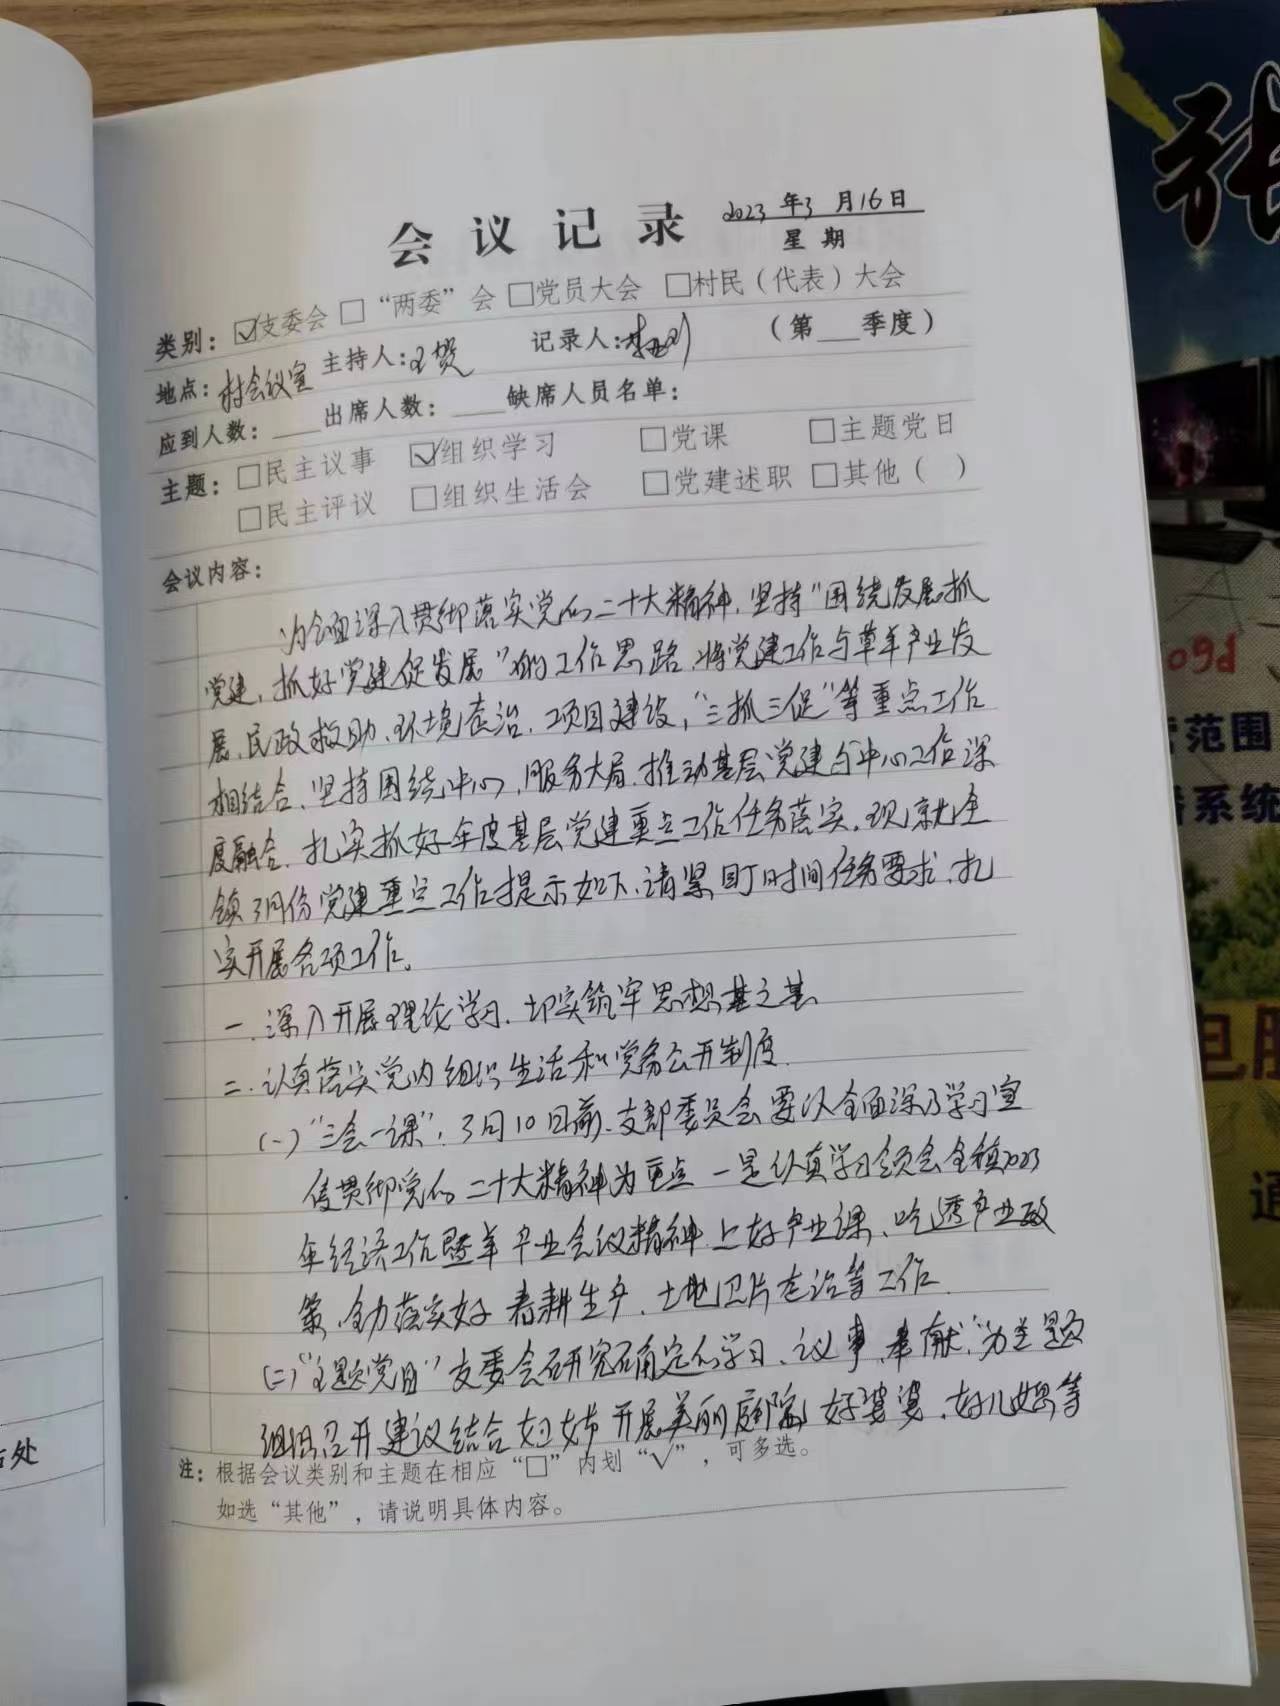 会议记录 2023年3月16日
星期
类别：☑支委会 □“两委”会 □党员大会 □村民（代表）大会
地点：村会议室 主持人：王贺 记录人： （第 季度）
应到人数： 出席人数： 缺席人员名单：
主题：□民主议事 ☑组织学习 □党课 □主题党日
□民主评议 □组织生活会 □党建述职 □其他（ ）
会议内容：
为全面深入贯彻落实党的二十大精神，坚持“围绕发展抓
党建，抓好党建促发展”的工作思路，将党建工作与草羊产业发
展、民政救助、环境整治、项目建设，“三抓三促”等重点工作
相结合，坚持围绕中心，服务大局，推动基层党建与中心工作深
度融合，扎实抓好年度基层党建重点工作任务落实，现就全
镇3月份党建重点工作提示如下，请紧盯时间任务要求，扎
实开展各项工作。
一．深入开展理论学习，切实筑牢思想基之基
二．认真落实党内组织生活和党务公开制度．
（一）“三会一课”，3月10日前，支部委员会要以全面深入学习宣
传贯彻党的二十大精神为重点 一是认真学习领会全镇2023
年经济工作暨羊产业会议精神，上好产业课，吃透产业政
策，全力落实好春耕生产，土地卫片整治等工作．
（二）“主题党日”支委会研究确定以学习、议事、奉献“为主题
组织召开 建议结合妇女节开展美丽庭院 好婆婆，好儿媳等
注：根据会议类别和主题在相应“□”内划“√”，可多选。
如选“其他”，请说明具体内容。
处
张
09d
范围
系统
电脑
通